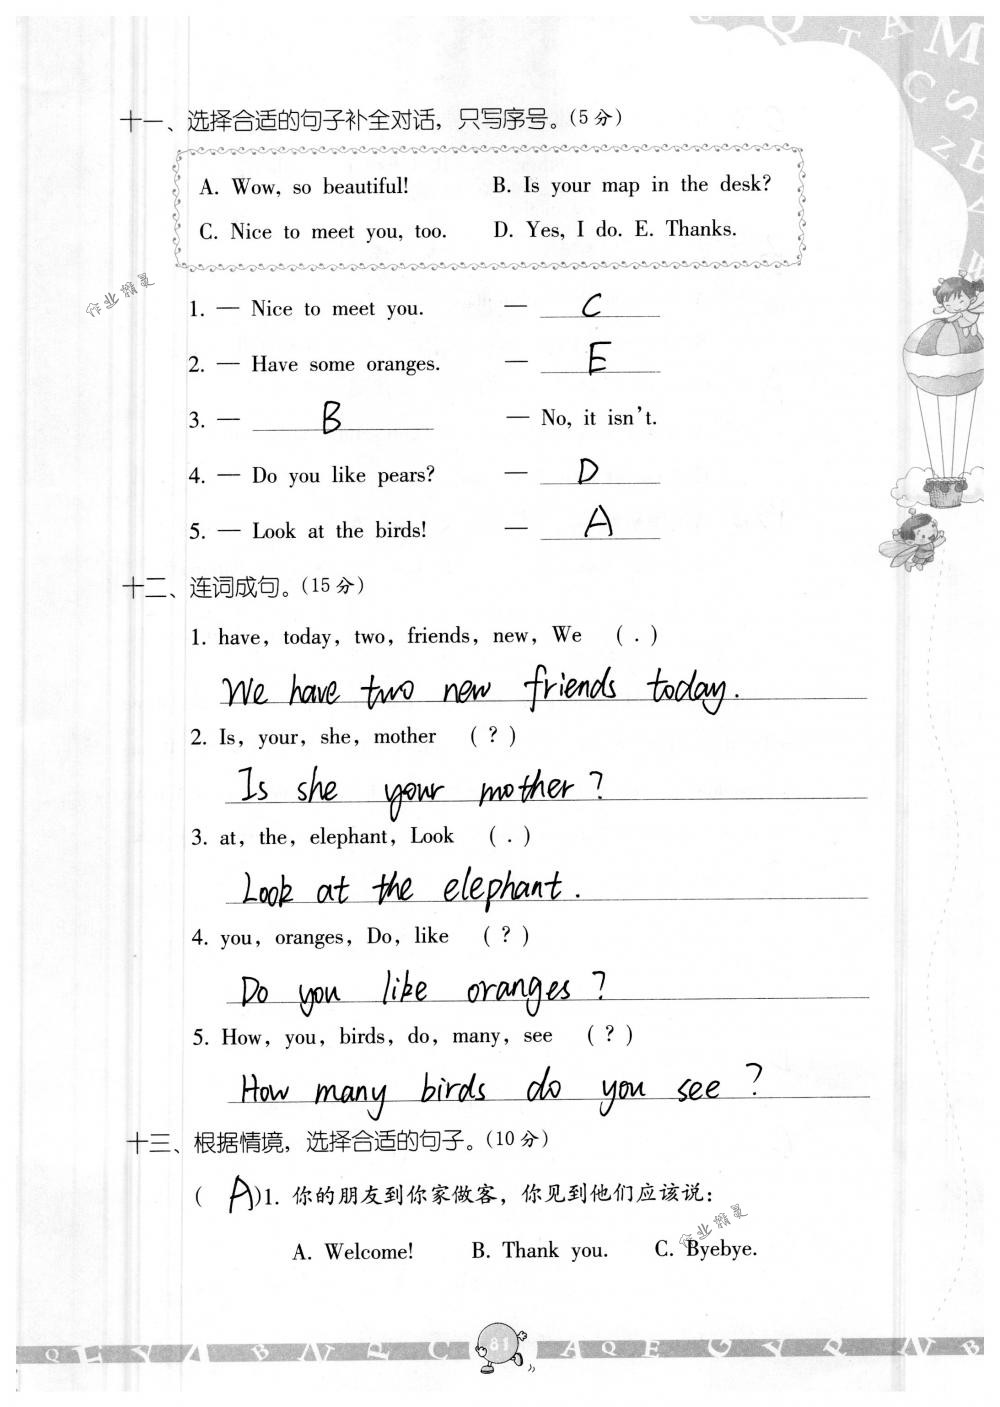 十一、选择合适的句子补全对话，只写序号。(5分)
A. Wow, so beautiful! B. Is your map in the desk?
C. Nice to meet you, too. D. Yes, I do. E. Thanks.
作业精灵
1. — Nice to meet you. — C
2. — Have some oranges. — E
3. — B — No, it isn't.
4. — Do you like pears? — D
5. — Look at the birds! — A
十二、连词成句。(15分)
1. have, today, two, friends, new, We (.)
We have two new friends today.
2. Is, your, she, mother (?)
Is she your mother?
3. at, the, elephant, Look (.)
Look at the elephant.
4. you, oranges, Do, like (?)
Do you like oranges?
5. How, you, birds, do, many, see (?)
How many birds do you see?
十三、根据情境，选择合适的句子。(10分)
(A)1. 你的朋友到你家做客，你见到他们应该说：
作业精灵
A. Welcome! B. Thank you. C. Byebye.
81